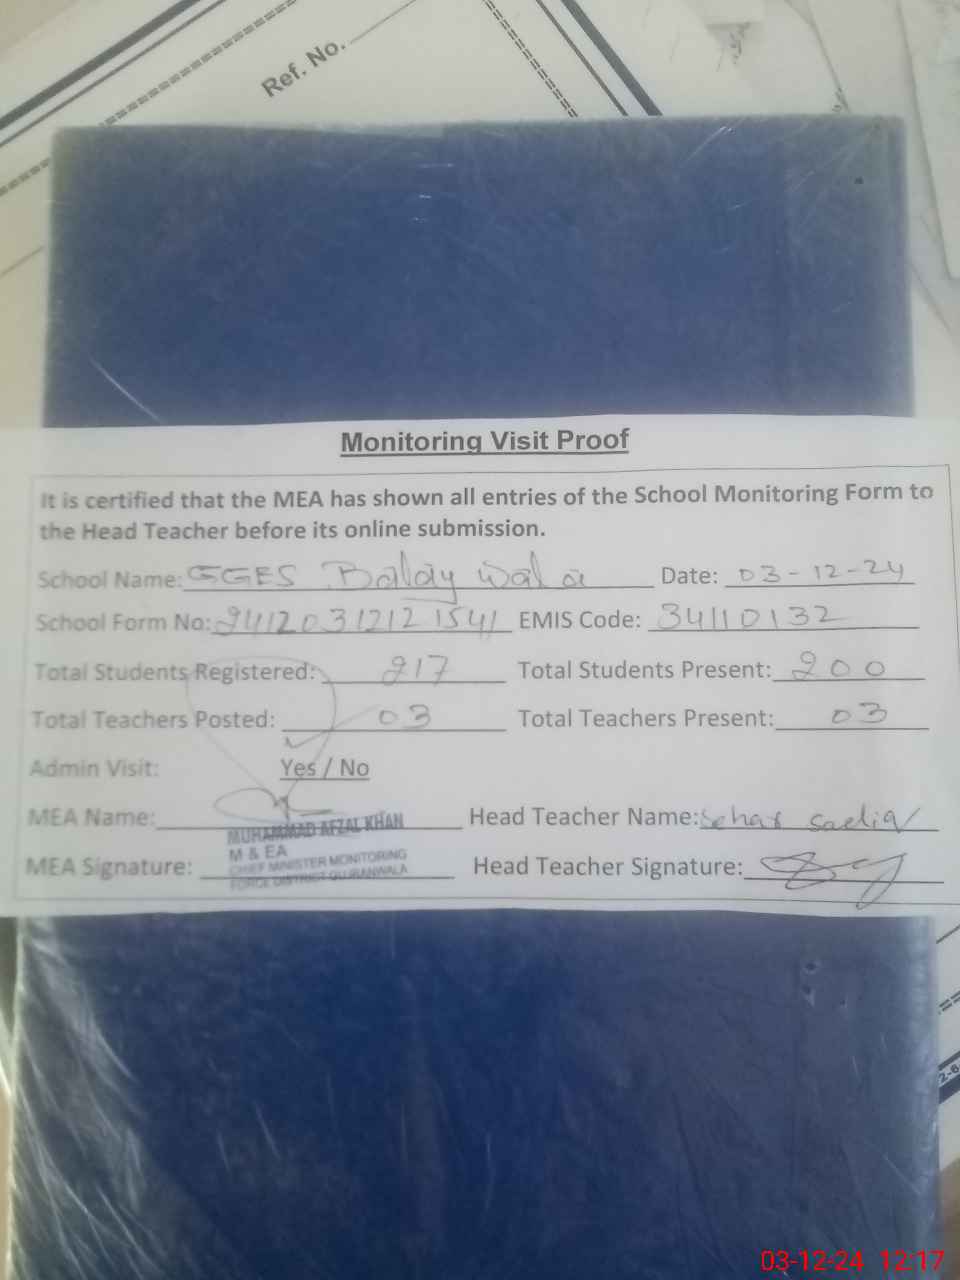 Ref. No.
Monitoring Visit Proof
It is certified that the MEA has shown all entries of the School Monitoring Form to
the Head Teacher before its online submission.
School Name: GGES Balay Wala Date: 03-12-24
School Form No: 241120312121541 EMIS Code: 34110132
Total Students Registered: 217 Total Students Present: 200
Total Teachers Posted: 03 Total Teachers Present: 03
Admin Visit: Yes / No
MEA Name: Head Teacher Name: Sehar Sadiq
MUHAMMAD AFZAL KHAN
M & EA
MEA Signature: Head Teacher Signature:
CHIEF MINISTER MONITORING
FORCE DISTRICT GUJRANWALA
03-12-24 12:17